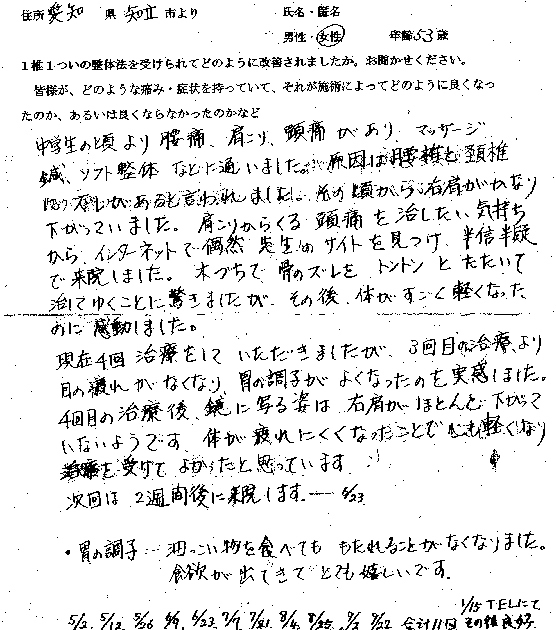 住所 愛知 県 知立 市より 氏名・匿名
男性・女性 年齢 53 歳
1椎1ついの整体法を受けられてどのように改善されましたか。お聞かせください。
皆様が、どのような痛み・症状を持っていて、それが施術によってどのように良くなっ
たのか、あるいは良くならなかったのかなど
中学生の頃より 腰痛、肩こり、頭痛 があり マッサージ
鍼、ソフト整体 などに通いました。原因は腰椎と頚椎
があると言われました。その頃から 右肩がかなり
下がっていました。肩こりからくる 頭痛 を治したい 気持ち
から、インターネットで 偶然 先生の サイト を見つけ、半信半疑
で来院しました。木づちで 骨のズレを トントン とたたいて
治してゆくことに 驚きましたが、その後、体が すごく 軽くなった
のに 感動しました。
現在4回 治療をして いただきましたが、3回目の治療より
目の疲れがなくなり、胃の調子が よくなったのを 実感しました。
4回目の治療後、鏡に写る姿は 右肩がほとんど下がって
いないようです。体が 疲れにくくなったことで 心も軽くなり
治療を受けて よかったと思っています。
次回は 2週間後に来院します。 — 5/23
・胃の調子 … 油っこい物を食べても もたれることがなくなりました。
食欲が 出てきて とても嬉しいです。
1/15 TELにて
5/2. 5/12. 合計11回 その後 良好